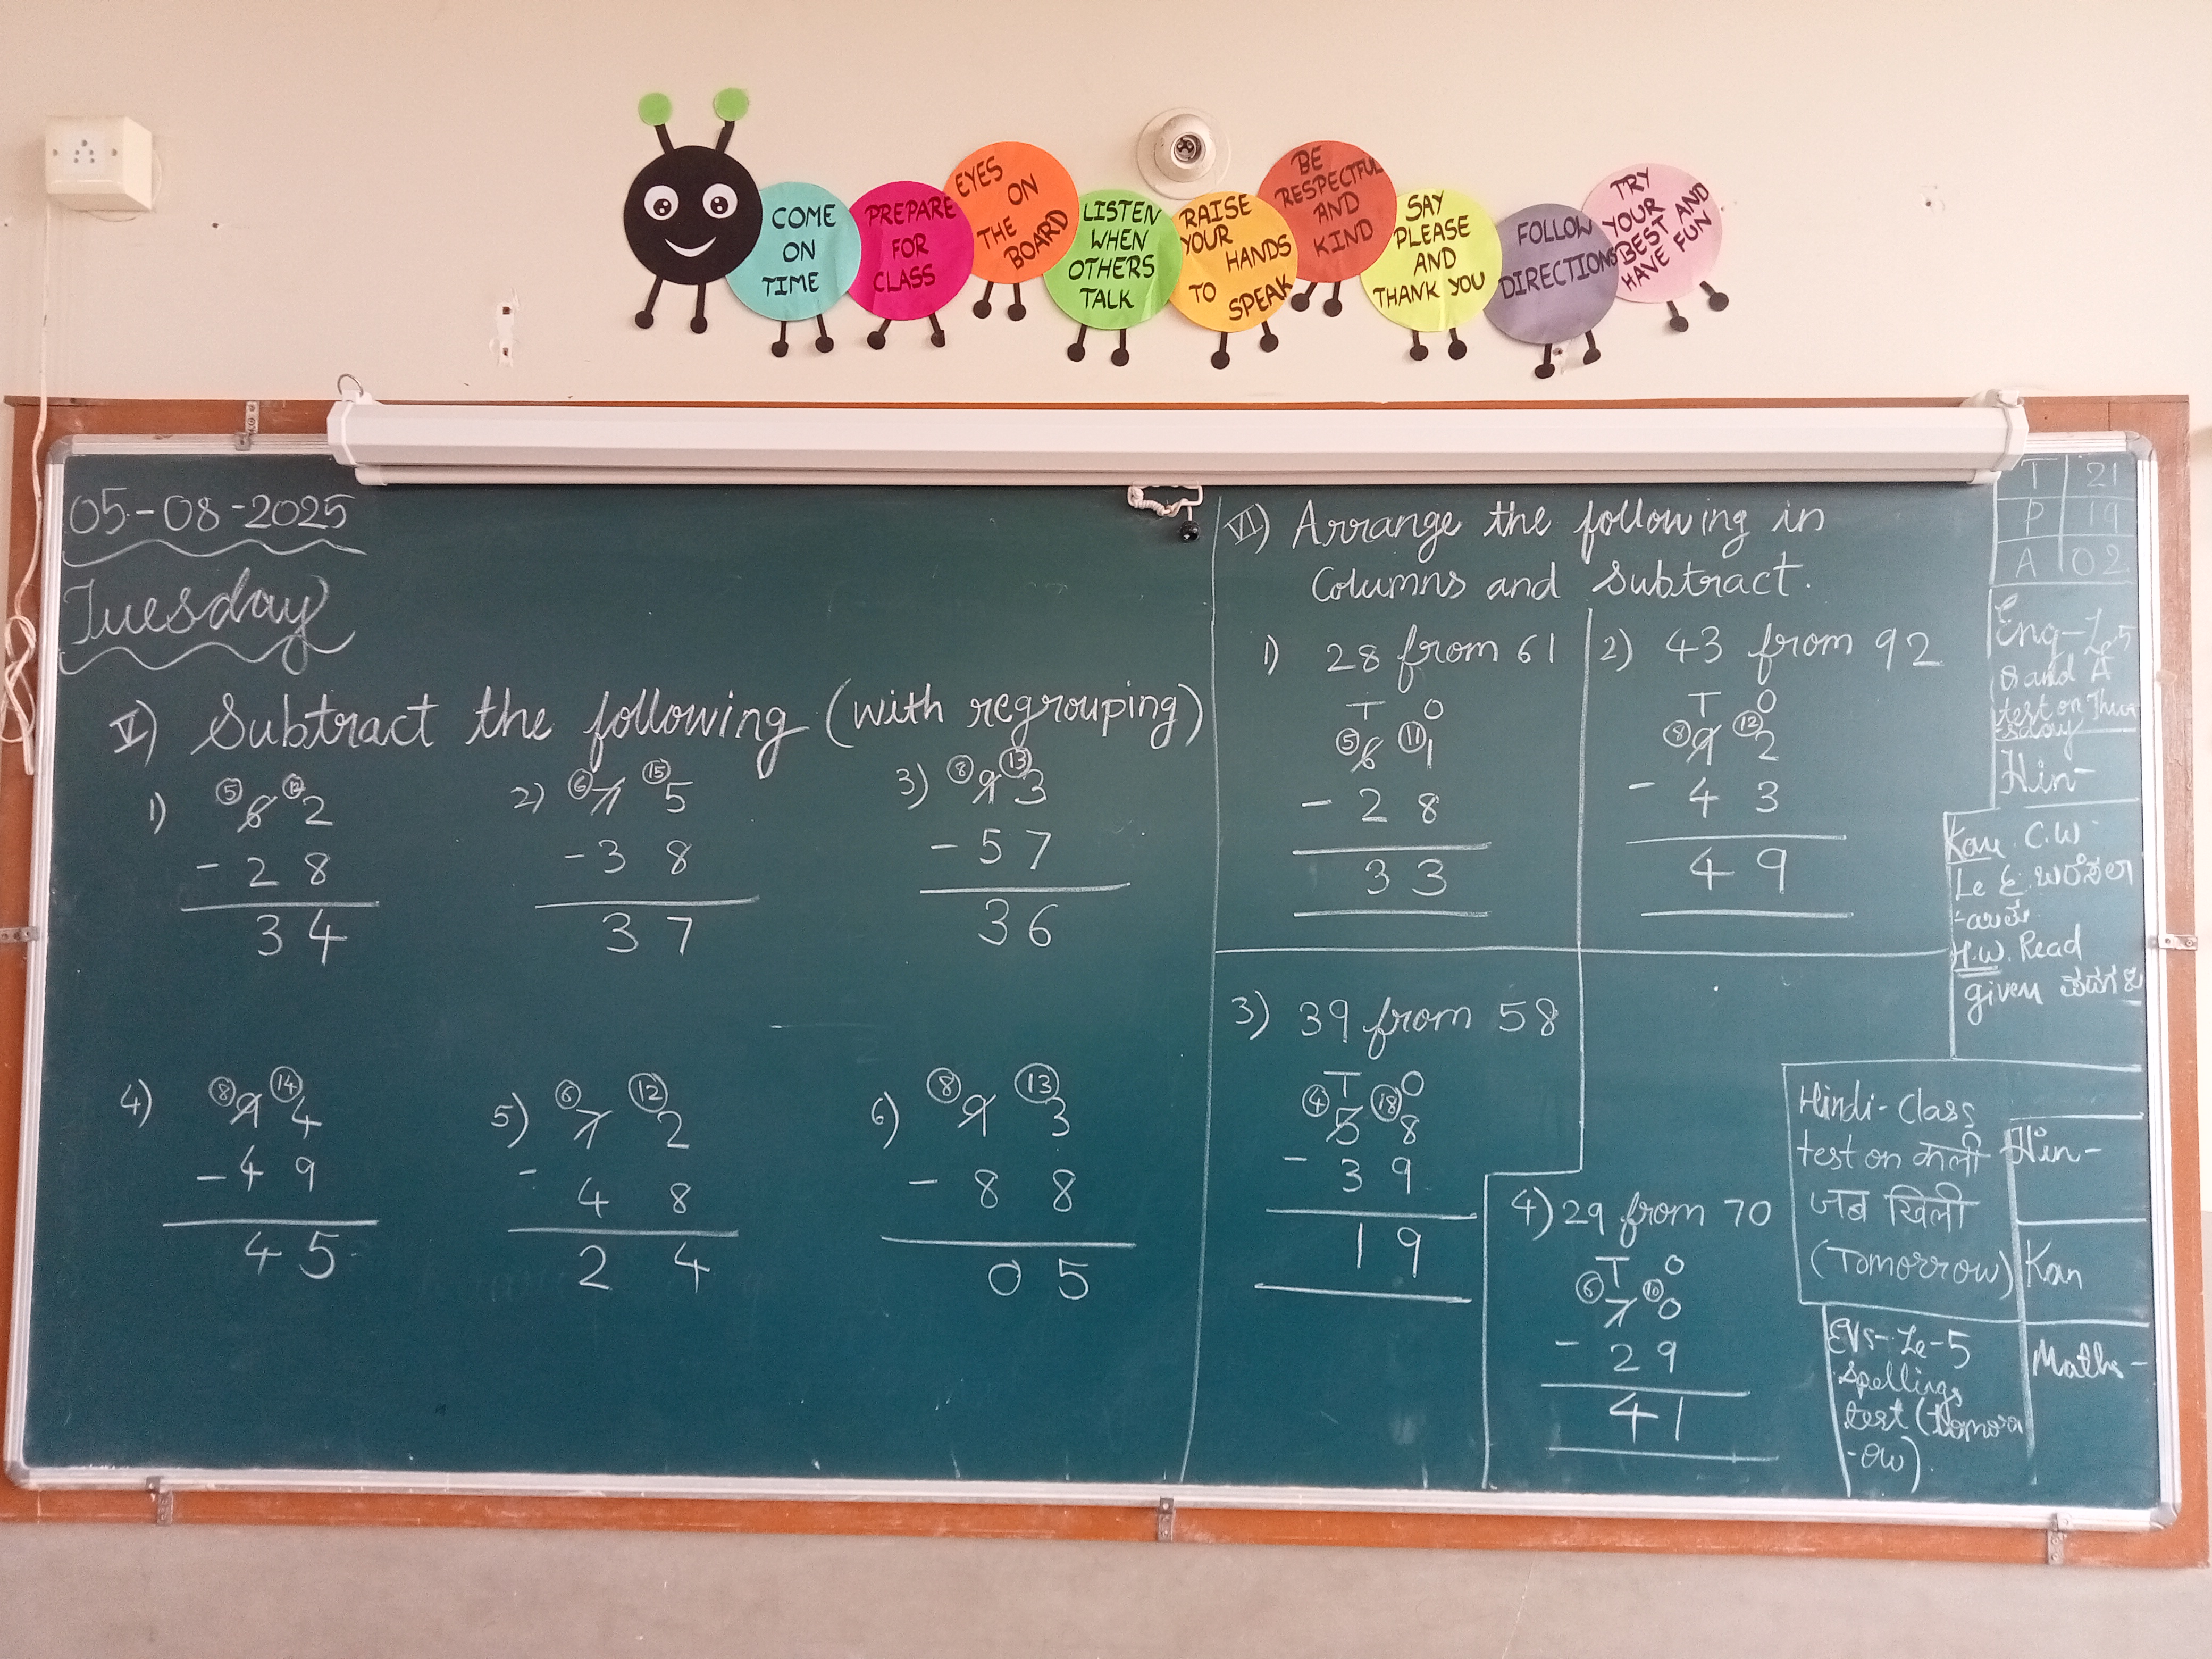 COME
ON
TIME
PREPARE
FOR
CLASS
EYES
ON
THE
BOARD
LISTEN
WHEN
OTHERS
TALK
RAISE
YOUR
HANDS
TO
SPEAK
BE
RESPECTFUL
AND
KIND
SAY
PLEASE
AND
THANK YOU
FOLLOW
DIRECTIONS
TRY
YOUR
BEST AND
HAVE FUN
05-08-2025
Tuesday
V) Subtract the following (with regrouping)
1) 5 6 12 2
- 2 8
3 4
2) 6 7 15 5
- 3 8
3 7
3) 8 9 13 3
- 5 7
3 6
4) 8 9 14 4
- 4 9
4 5
5) 6 7 12 2
- 4 8
2 4
6) 8 9 13 3
- 8 8
0 5
VI) Arrange the following in
Columns and Subtract.
1) 28 from 61
T O
5 6 11 1
- 2 8
3 3
2) 43 from 92
T O
8 9 12 2
- 4 3
4 9
3) 39 from 58
T O
4 5 18 8
- 3 9
1 9
4) 29 from 70
T O
6 7 10 0
- 2 9
4 1
T 21
P 19
A 02
Eng-Le-5
Q and A
test on Thur
-sday
Hin-
Kan C.W
Le
H.W. Read
given
Hindi-Class
test on कली
जब खिली
(Tomorrow)
Hin-
Kan
Maths-
EVS-Le-5
Spellings
test (tomorr
-ow).